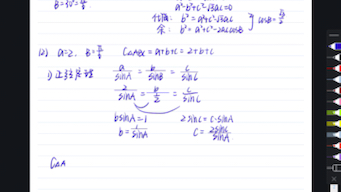 B=30°=π/6
a²-b²+c²-√3ac=0
化简: b²=a²+c²-√3ac
余: b²=a²+c²-2accosB } cosB=√3/2
(2) a=2, B=π/6 C△ABC=a+b+c=2+b+c
1) 正弦定理 a/sinA = b/sinB = c/sinC
2/sinA = b/(1/2) = c/sinC
bsinA=1 2sinC=c·sinA
b=1/sinA c=2sinC/sinA
C△A